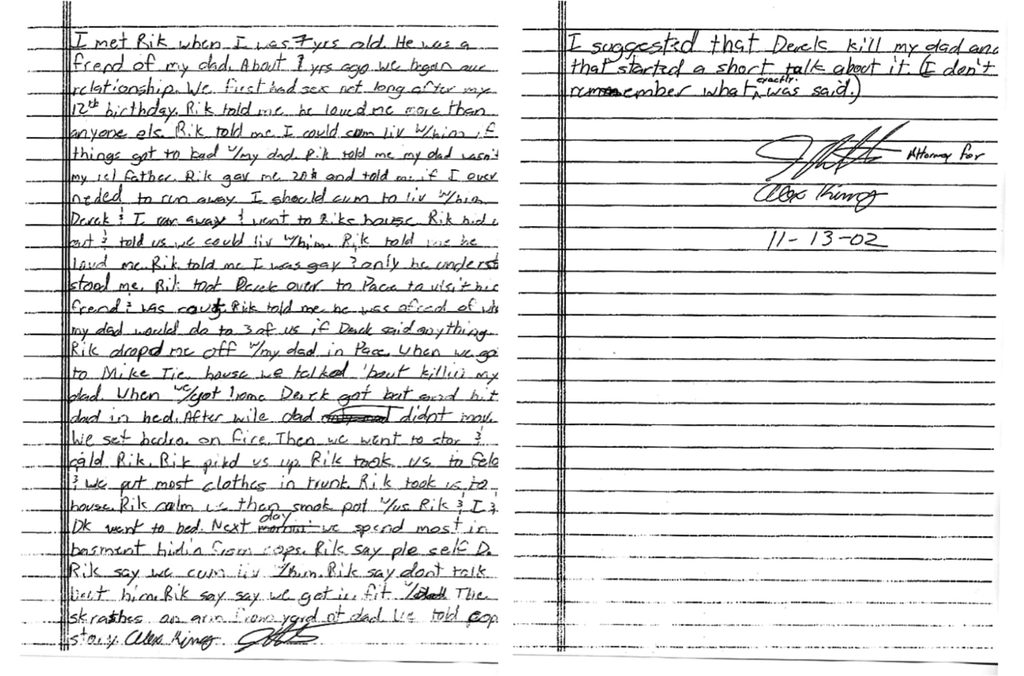 I met Rik when I was 7 yrs old. He was a
frend of my dad. About 1 yrs ago we began our
relationship. We first had sex not long after my
12th birthday. Rik told me he loved me more than
anyone els. Rik told me I could cum liv w/him if
things got to bad w/my dad. Rik told me my dad wasn't
my rel father. Rik gav me 20$ and told me if I ever
neded to run away I should cum to liv w/him
Derek & I ran away & went to Riks house. Rik hid
& told us we could liv w/him. Rik told me he
lovd me. Rik told me I was gay & only he underst
stood me. Rik took Derek over to Pace to visit his
frend & was caut. Rik told me he was afred of
my dad would do to 3 of us if Derek said anything.
Rik droped me off w/my dad in Pace. When we go
to Mike Tie house we talked 'bout killin my
dad. When we got home Derek got bat and hit
dad in bed. After wile dad didnt mov.
We set bedrm on fire. Then we went to stor &
cald Rik. Rik pikd us up. Rik took us to
& we put most clothes in trunk. Rik took us to
house. Rik calm us then smok pot w/us Rik & I &
DK went to bed. Next day we spend most in
basment hidin from cops. Rik say ple self D.
Rik say we cum liv w/him. Rik say dont talk
bout him. Rik say say we got in fit. The
skrashes on arm from yard at dad. We told cop
story. Alex King
I suggested that Derek kill my dad and
that started a short talk about it. (I don't
remember what exactly was said.)
Attorney for
Alex King
11-13-02